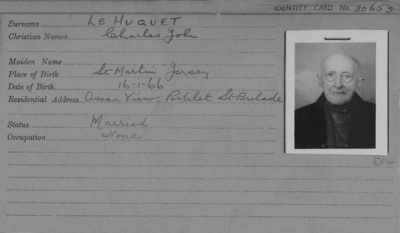 IDENTITY CARD No. 3065
Surname LE HUQUET
Christian Names Charles John
Maiden Name
Place of Birth St Martin Jersey
Date of Birth 16-1-66
Residential Address Ocean View, Portelet St Brelade
Status Married
Occupation None